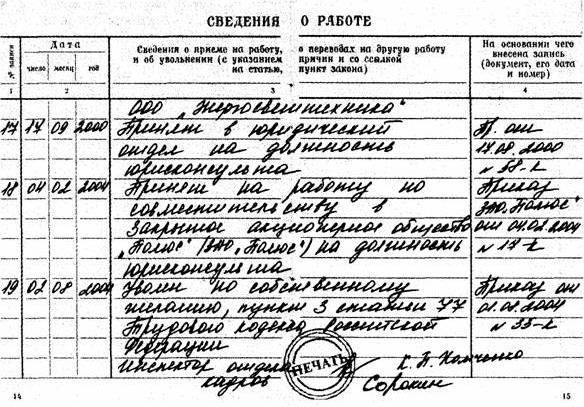 СВЕДЕНИЯ О РАБОТЕ
№ записи
Дата
число месяц год
Сведения о приеме на работу, о переводах на другую работу
и об увольнении (с указанием причин и со ссылкой
на статью, пункт закона)
На основании чего
внесена запись
(документ, его дата
и номер)
1 2 3 4
ООО "Энергосвет техника"
17 17 09 2000 Принят в юридический Пр. от
отдел на должность 17.08.2000
юрисконсульта № 58-к
18 04 02 2004 Принят на работу по Приказ
совместительству в ЗАО "Полюс"
Закрытое акционерное общество от 04.02.2004
"Полюс" (ЗАО "Полюс") на должность № 17-к
юрисконсульта
19 02 08 2004 Уволен по собственному Приказ от
желанию, пункт 3 статьи 77 01.08.2004
Трудового кодекса Российской № 33-к
Федерации
Инспектор отдела К. П.
кадров Сорокин
ПЕЧАТЬ
14 15